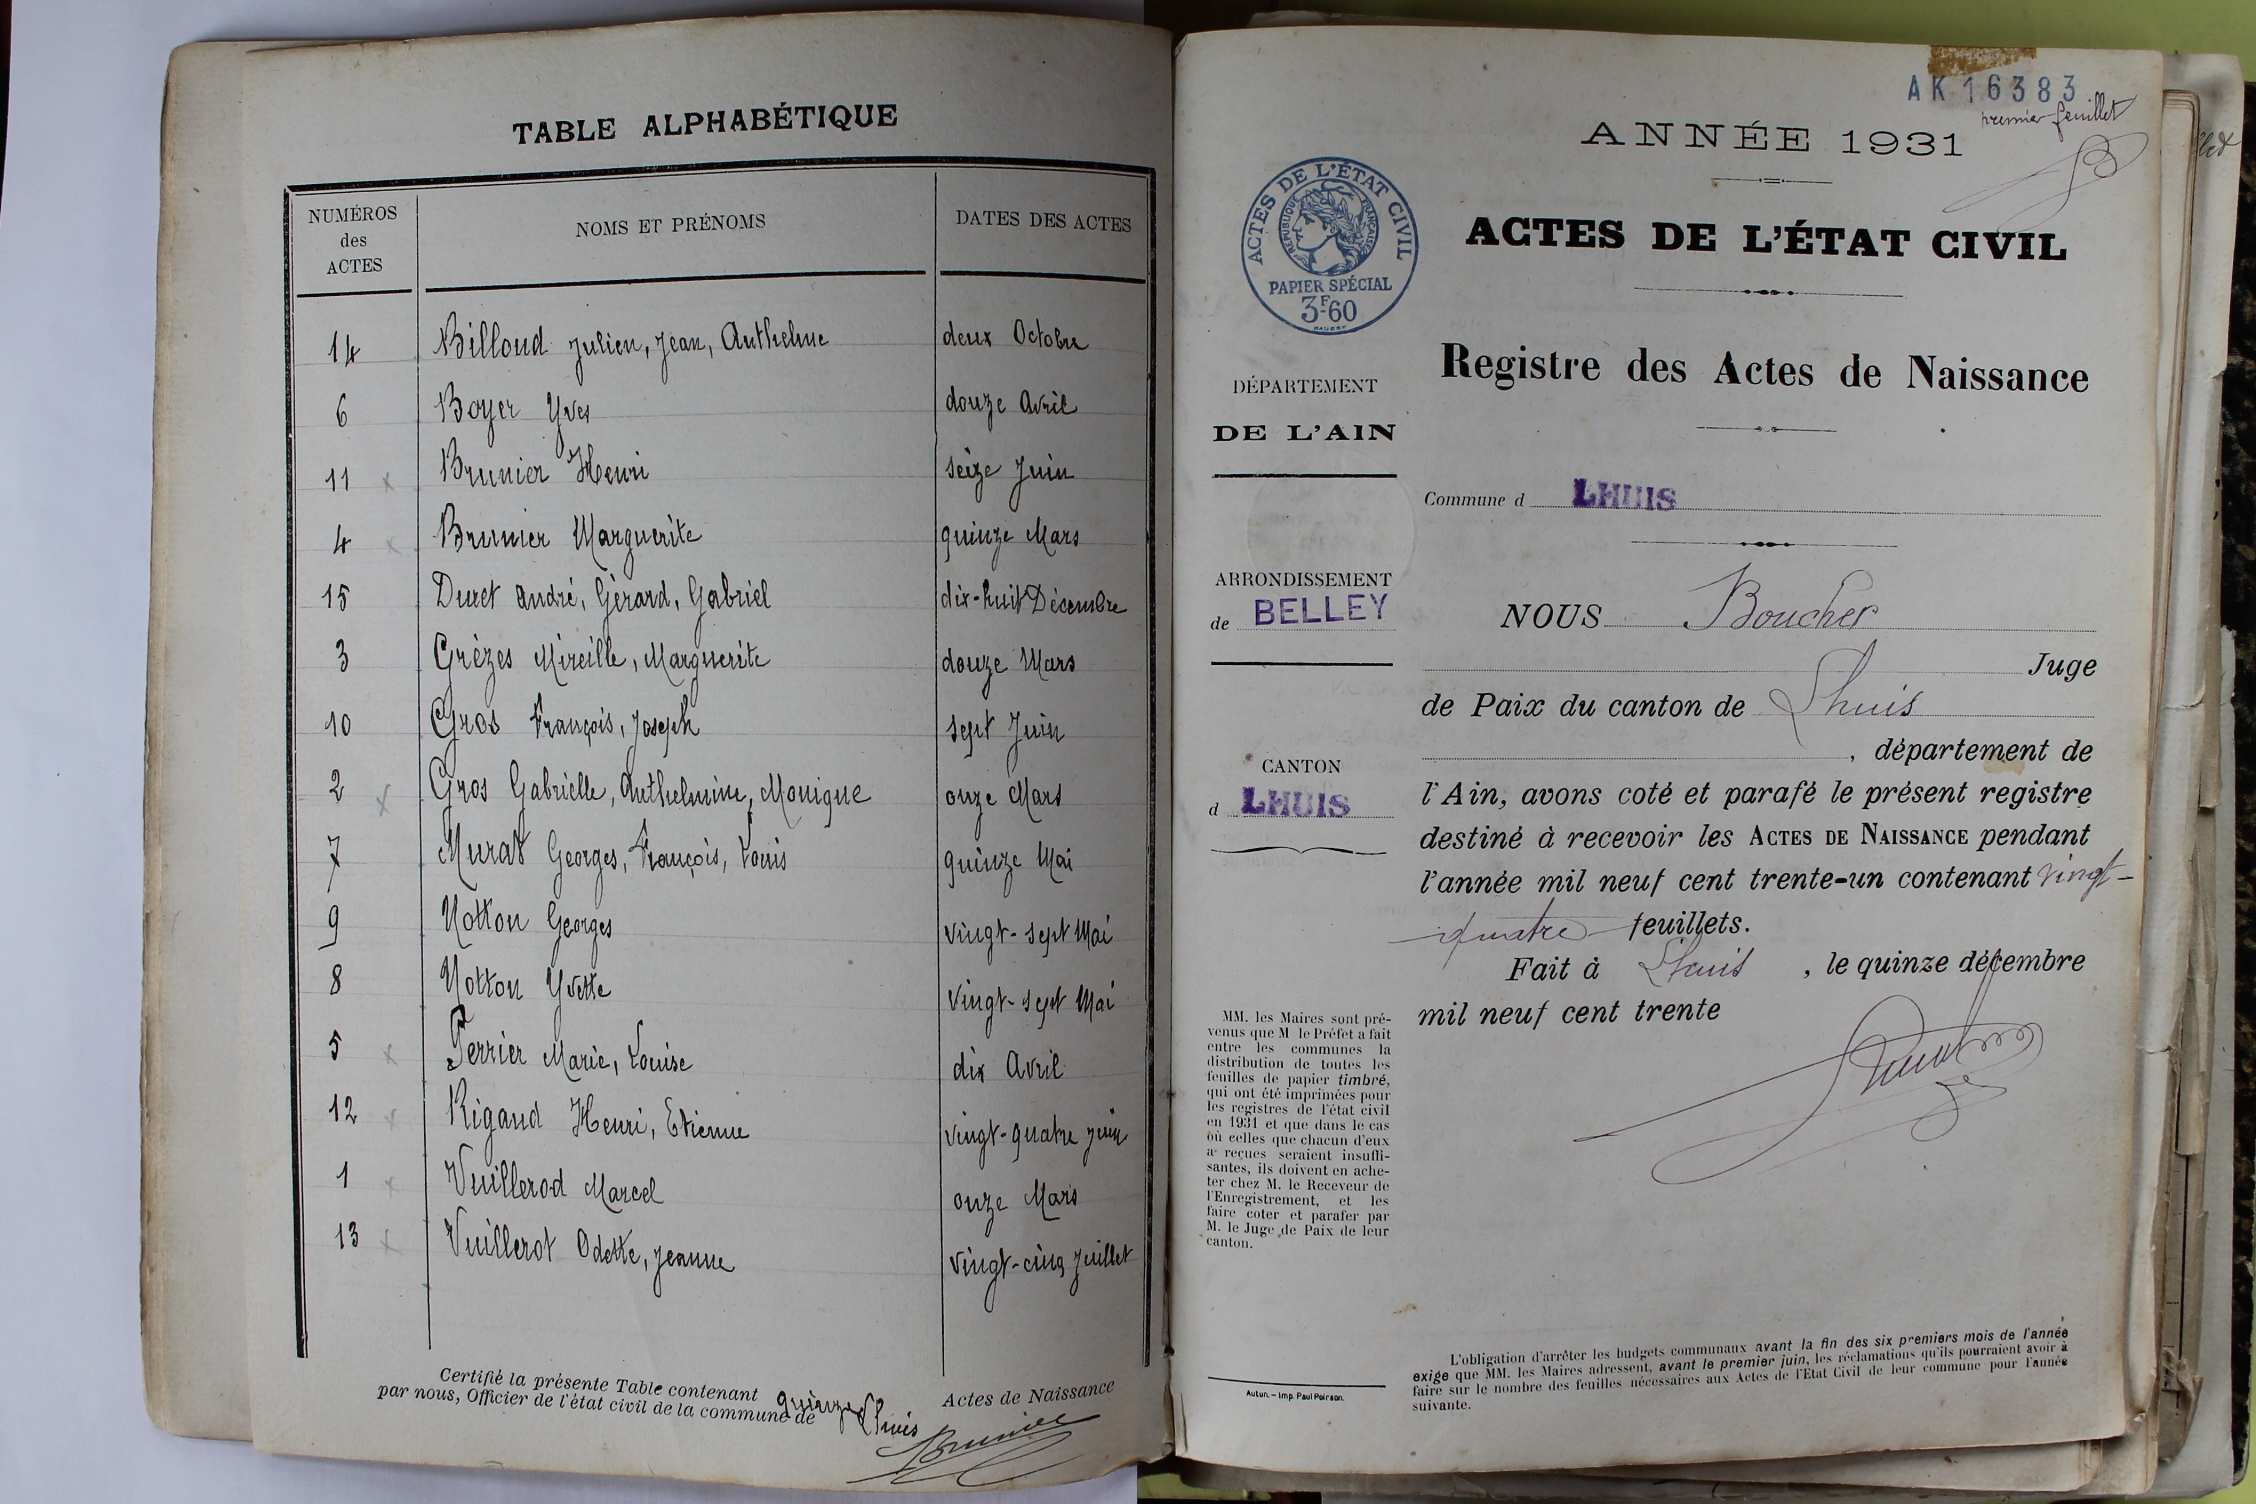 TABLE ALPHABÉTIQUE
NUMÉROS des ACTES NOMS ET PRÉNOMS DATES DES ACTES
14 Billoud Julien, Jean, Anthelme deux Octobre
6 Boyer Yves douze Avril
11 x Brunier Henri seize Juin
4 x Brunier Marguerite quinze Mars
15 Duret André, Gérard, Gabriel dix-huit Décembre
3 Grèzes Mireille, Marguerite douze Mars
10 Gros François, Joseph sept Juin
2 x Gros Gabrielle, Anthelmine, Monique onze Mars
7 Murat Georges, François, Louis quinze Mai
9 Notton Georges vingt-sept Mai
8 Notton Yvette vingt-sept Mai
5 x Perrier Marie, Louise dix Avril
12 x Rigaud Henri, Etienne vingt-quatre juin
1 x Vuillerod Marcel onze Mars
13 x Vuillerot Odette, Jeanne vingt-cinq Juillet
Certifié la présente Table contenant quinze Actes de Naissance
par nous, Officier de l'état civil de la commune de Lhuis
Brunier
AK 16383
premier feuillet
ANNÉE 1931
ACTES DE L'ÉTAT CIVIL
RÉPUBLIQUE FRANÇAISE
PAPIER SPÉCIAL
3F.60
ACTES DE L'ÉTAT CIVIL
Registre des Actes de Naissance
DÉPARTEMENT
DE L'AIN
Commune d LHUIS
ARRONDISSEMENT
de BELLEY
CANTON
d LHUIS
NOUS Boucher
Juge
de Paix du canton de Lhuis
, département de
l'Ain, avons coté et parafé le présent registre
destiné à recevoir les ACTES DE NAISSANCE pendant
l'année mil neuf cent trente-un contenant vingt-
quatre feuillets.
Fait à Lhuis , le quinze décembre
mil neuf cent trente
MM. les Maires sont pré-
venus que M le Préfet a fait
entre les communes la
distribution de toutes les
feuilles de papier timbré,
qui ont été imprimées pour
les registres de l'état civil
en 1931 et que dans le cas
où celles que chacun d'eux
a reçues seraient insuffi-
santes, ils doivent en ache-
ter chez M. le Receveur de
l'Enregistrement, et les
faire coter et parafer par
M. le Juge de Paix de leur
canton.
Autun. – Imp. Paul Poirson.
L'obligation d'arrêter les budgets communaux avant la fin des six premiers mois de l'année
exige que MM. les Maires adressent, avant le premier juin, les réclamations qu'ils pourraient avoir à
faire sur le nombre des feuilles nécessaires aux Actes de l'Etat Civil de leur commune pour l'année
suivante.